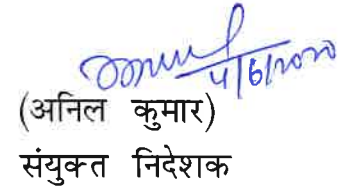 4/6/2020
(अनिल कुमार)
संयुक्त निदेशक